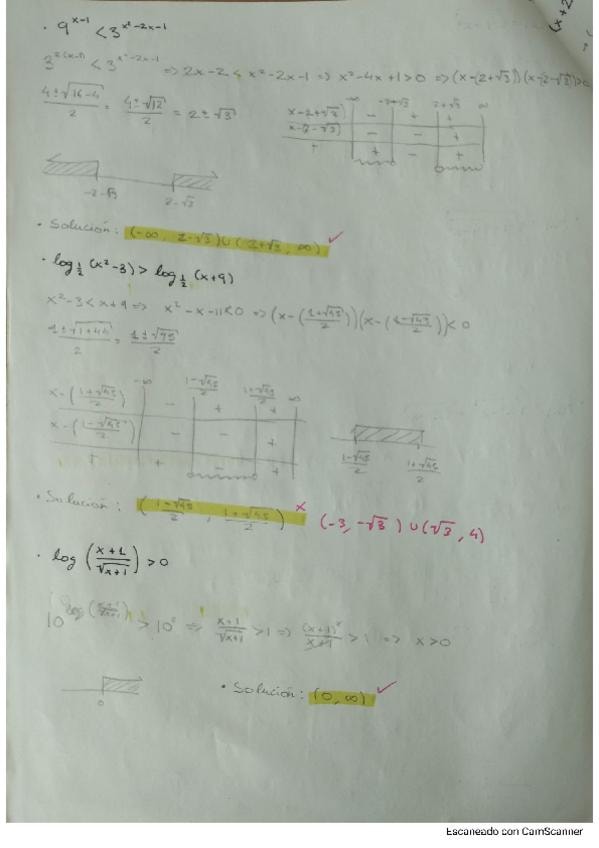 (x+2
· 9^(x-1) < 3^(x²-2x-1)
3^(2(x-1)) < 3^(x²-2x-1) ⇒ 2x-2 < x²-2x-1 ⇒ x²-4x+1>0 ⇒ (x-(2+√3))(x-(2-√3))>0
(4±√(16-4))/2 = (4±√12)/2 = 2±√3
-∞ 2+√3 ∞
- + +
- - +
+ + - +
-2-√3 2-√3
· Solución: (-∞, 2-√3) ∪ (2+√3, ∞) ✓
· log_½ (x²-3) > log_½ (x+9)
x²-3 < x+9 ⇒ x²-x-11<0 ⇒ (x-((1+√45)/2))(x-((1-√45)/2))<0
(1±√(1+44))/2 = (1±√45)/2
-∞ (1-√45)/2 (1+√45)/2 ∞
x-((1+√45)/2) - +
x-((1-√45)/2) - - +
+ + - +
(1-√45)/2 (1+√45)/2
· Solución: ((1-√45)/2, (1+√45)/2) × (-3, -√3) ∪ (√3, 4)
· log ((x+1)/√(x+1)) > 0
10^(log((x+1)/√(x+1))) > 10⁰ ⇒ (x+1)/√(x+1) > 1 ⇒ (x+1)²/(x+1) > 1 ⇒ x>0
0
· Solución: (0, ∞) ✓
Escaneado con CamScanner